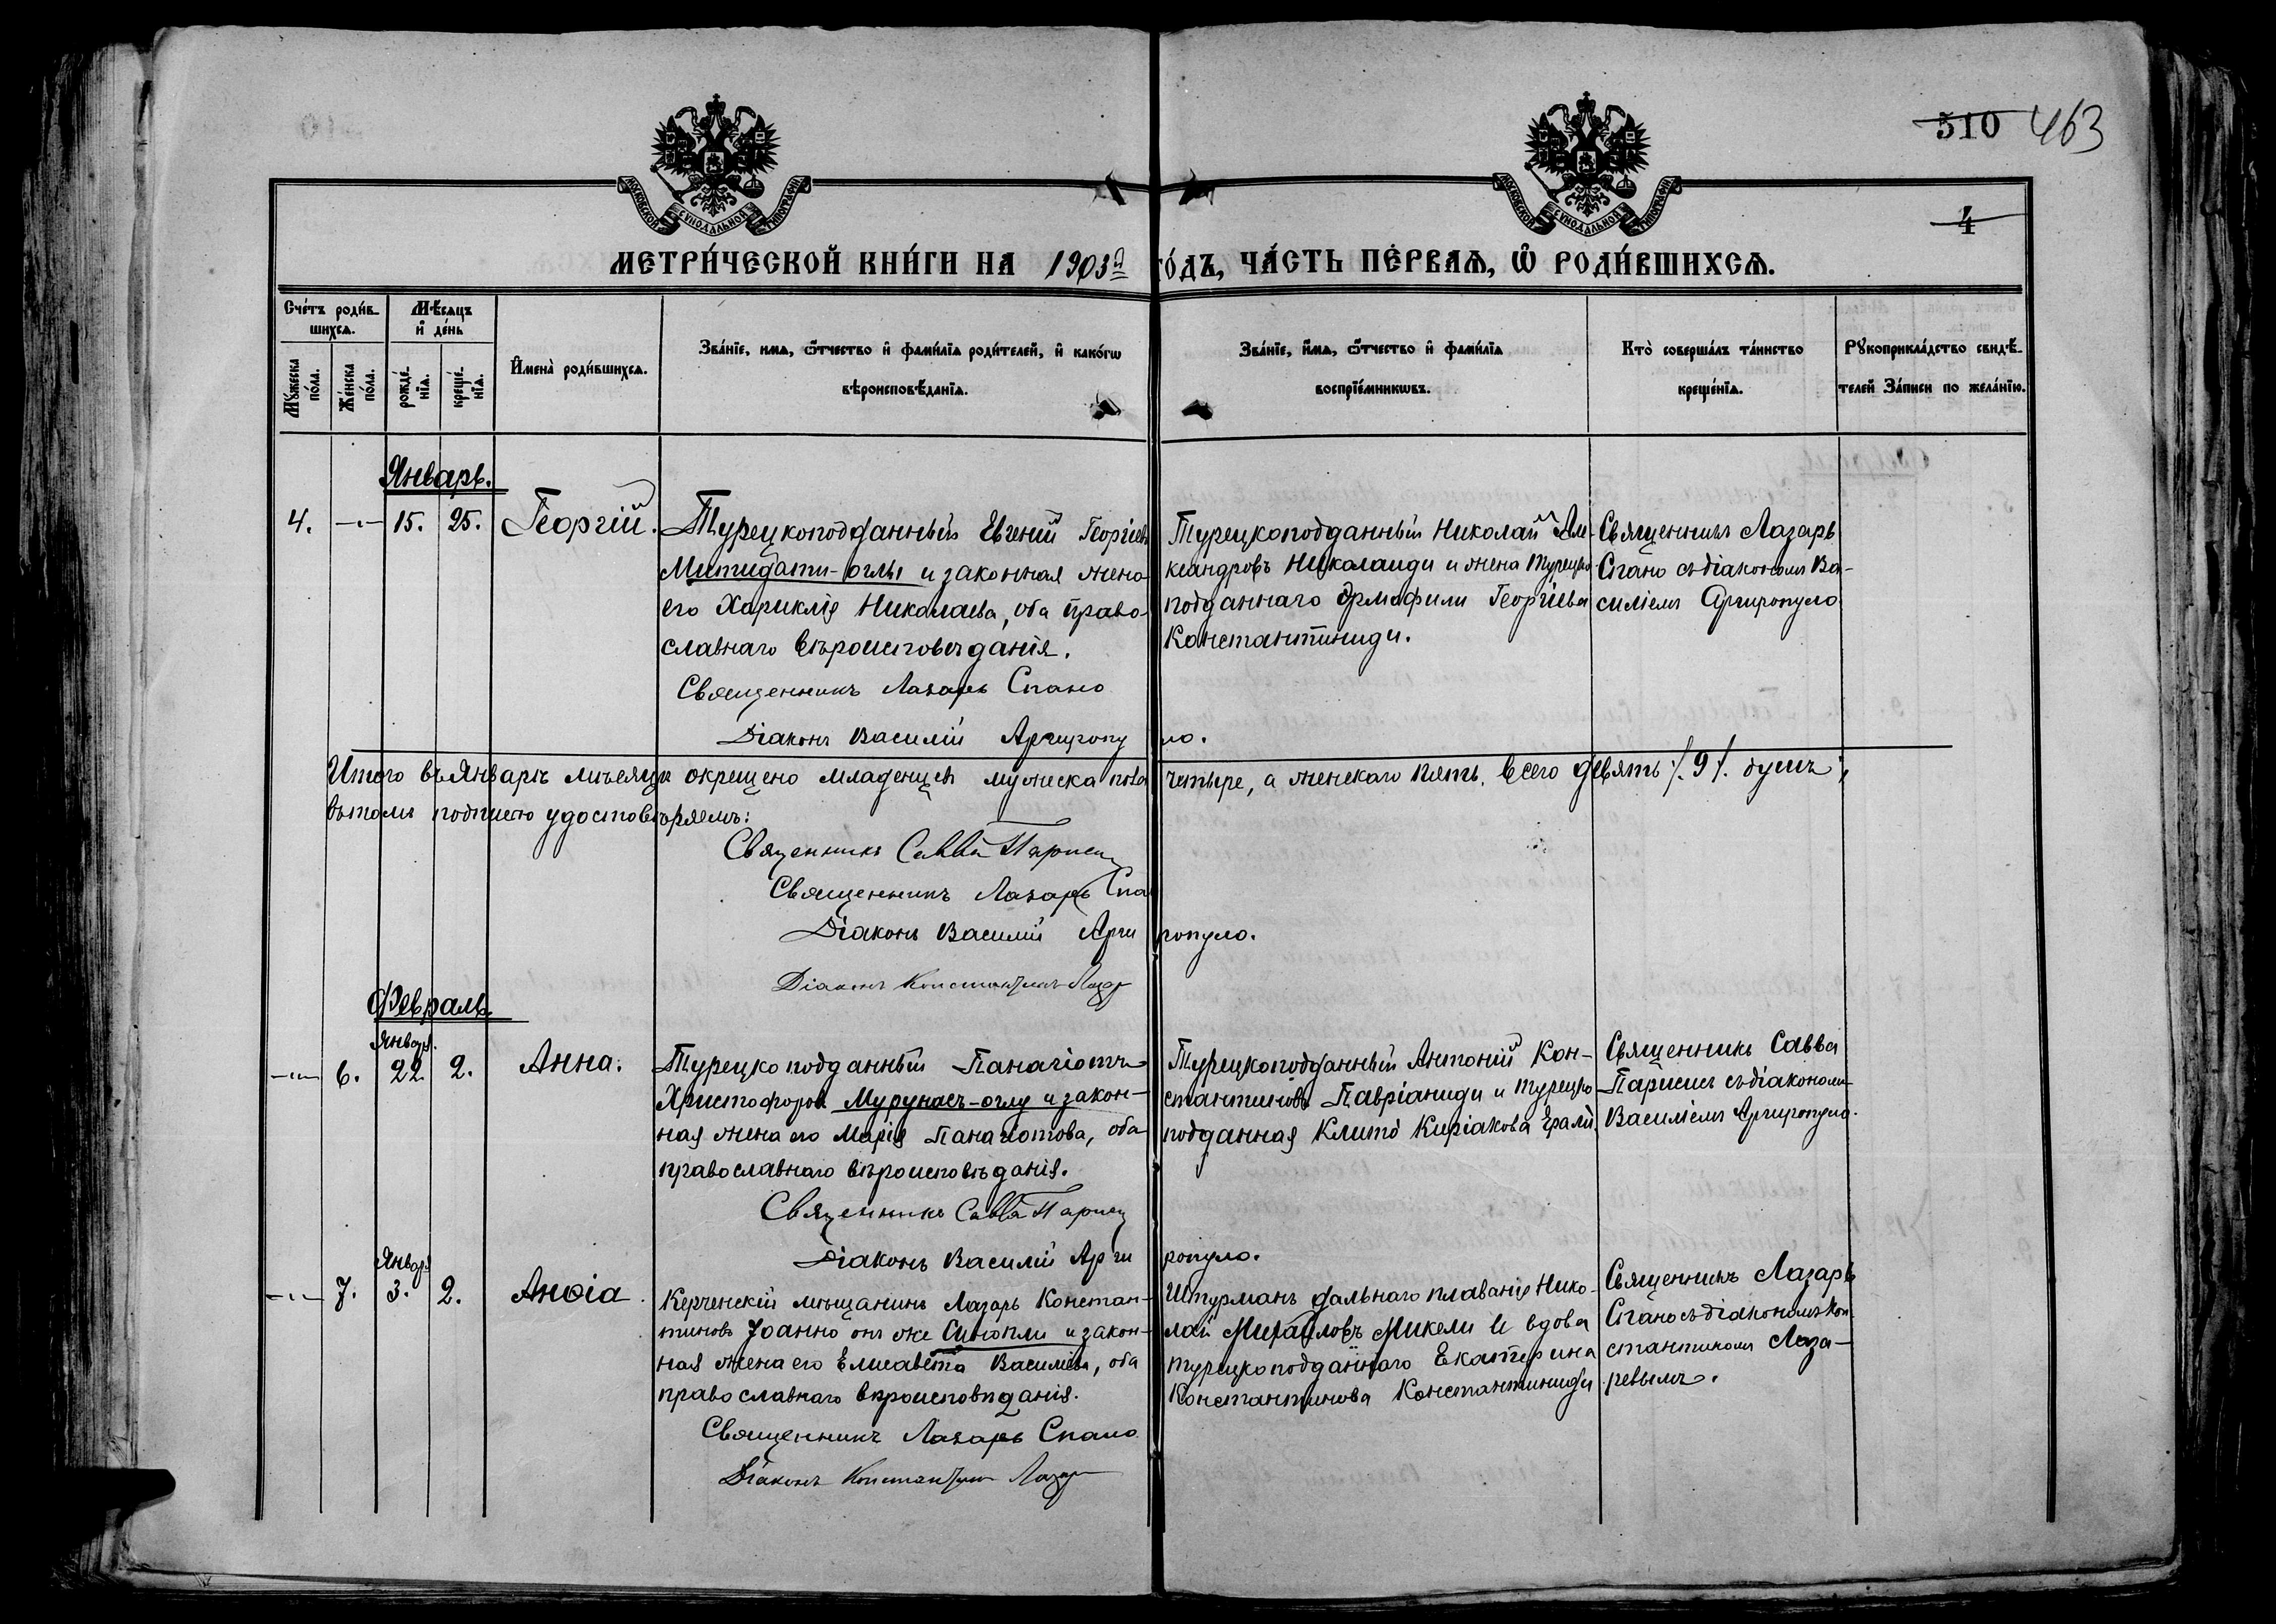 510 463
4
МОСКОВСКОЙ СѴНОДАЛЬНОЙ ТИПОГРАФІИ
МОСКОВСКОЙ СѴНОДАЛЬНОЙ ТИПОГРАФІИ
МЕТРИ́ЧЕСКОЙ КНИ́ГИ НА 1903й ГО́ДЪ, ЧА́СТЬ ПЕ́РВАѦ, Ѿ РОДИ́ВШИХСѦ.
Сче́тъ роди́в-
шихсѧ.
Мѣ́сѧцъ
и҆ де́нь
Мꙋ́жеска
по́ла.
Же́нска
по́ла.
рожде́-
нїѧ.
креще́-
нїѧ.
И҆мена̀ роди́вшихсѧ.
Зва́нїе, имѧ, ѻ҆́тчество и҆ фами́лїѧ роди́телей, и҆ како́гѡ
вѣроисповѣ́данїѧ.
Зва́нїе, и҆́мѧ, ѻ҆́тчество и҆ фами́лїѧ
воспрїе́мникѡвъ.
Кто̀ соверша́лъ та́инство
креще́нїѧ.
Рꙋкоприкла́дство свидѣ́-
телей за́писи по жела́нїю.
Январь.
4. —„— 15. 25. Георгій.
Турецкоподданный Евгений Георгіевъ
Митидати-оглы и законная жена
его Хариклія Николаева, оба право-
славнаго вѣроисповѣданія.
Священникъ Лазарь Спано
Діаконъ Василій Аргиропуло.
Турецкоподданный Николай Але-
ксандровъ Николаиди и жена Турецко-
подданнаго Ермофили Георгіева
Константиниди.
Священникъ Лазарь
Спано съ діакономъ Ва-
силіемъ Аргиропуло
Итого въ Январѣ мѣсяцѣ окрещено младенцев мужеска пола четыре, а женскаго пять, всего девять ·/. 9 /. душъ,
въ томъ подписью удостовѣряемъ:
Священникъ Савва Париси
Священникъ Лазарь Спа
Діаконъ Василій Аргиропуло.
Діаконъ Константинъ Лазар
Февраль
—„— 6. Январ. 22. 2. Анна.
Турецкоподданный Панагіотъ
Христофоровъ Мурунасъ-оглу и закон-
ная жена его Марія Панагіотова, оба
православнаго вѣроисповѣданія.
Священникъ Савва Париси
Діаконъ Василій Аргиропуло.
Турецкоподданный Антоній Кон-
стантиновъ Павріаниди и турецко
подданная Клитò Киріакова Ерали
Священникъ Савва
Парисис съ діакономъ
Василіемъ Аргиропуло.
—„— 7. Январ. 3. 2. Анѳіа
Керченскій мѣщанинъ Лазарь Констан-
тиновъ Іоанно онъ же Синопли и закон-
ная жена его Елисавета Василіева, оба
православнаго вѣроисповѣданія.
Священникъ Лазарь Спано
Діаконъ Константинъ Лазар
Штурманъ дальнаго плаванія Нико-
лай Михайловъ Микели и вдова
турецкоподданнаго Екатерина
Константинова Константиниди
Священникъ Лазарь
Спано съ діакономъ Кон
стантиномъ Лаза-
ревымъ.